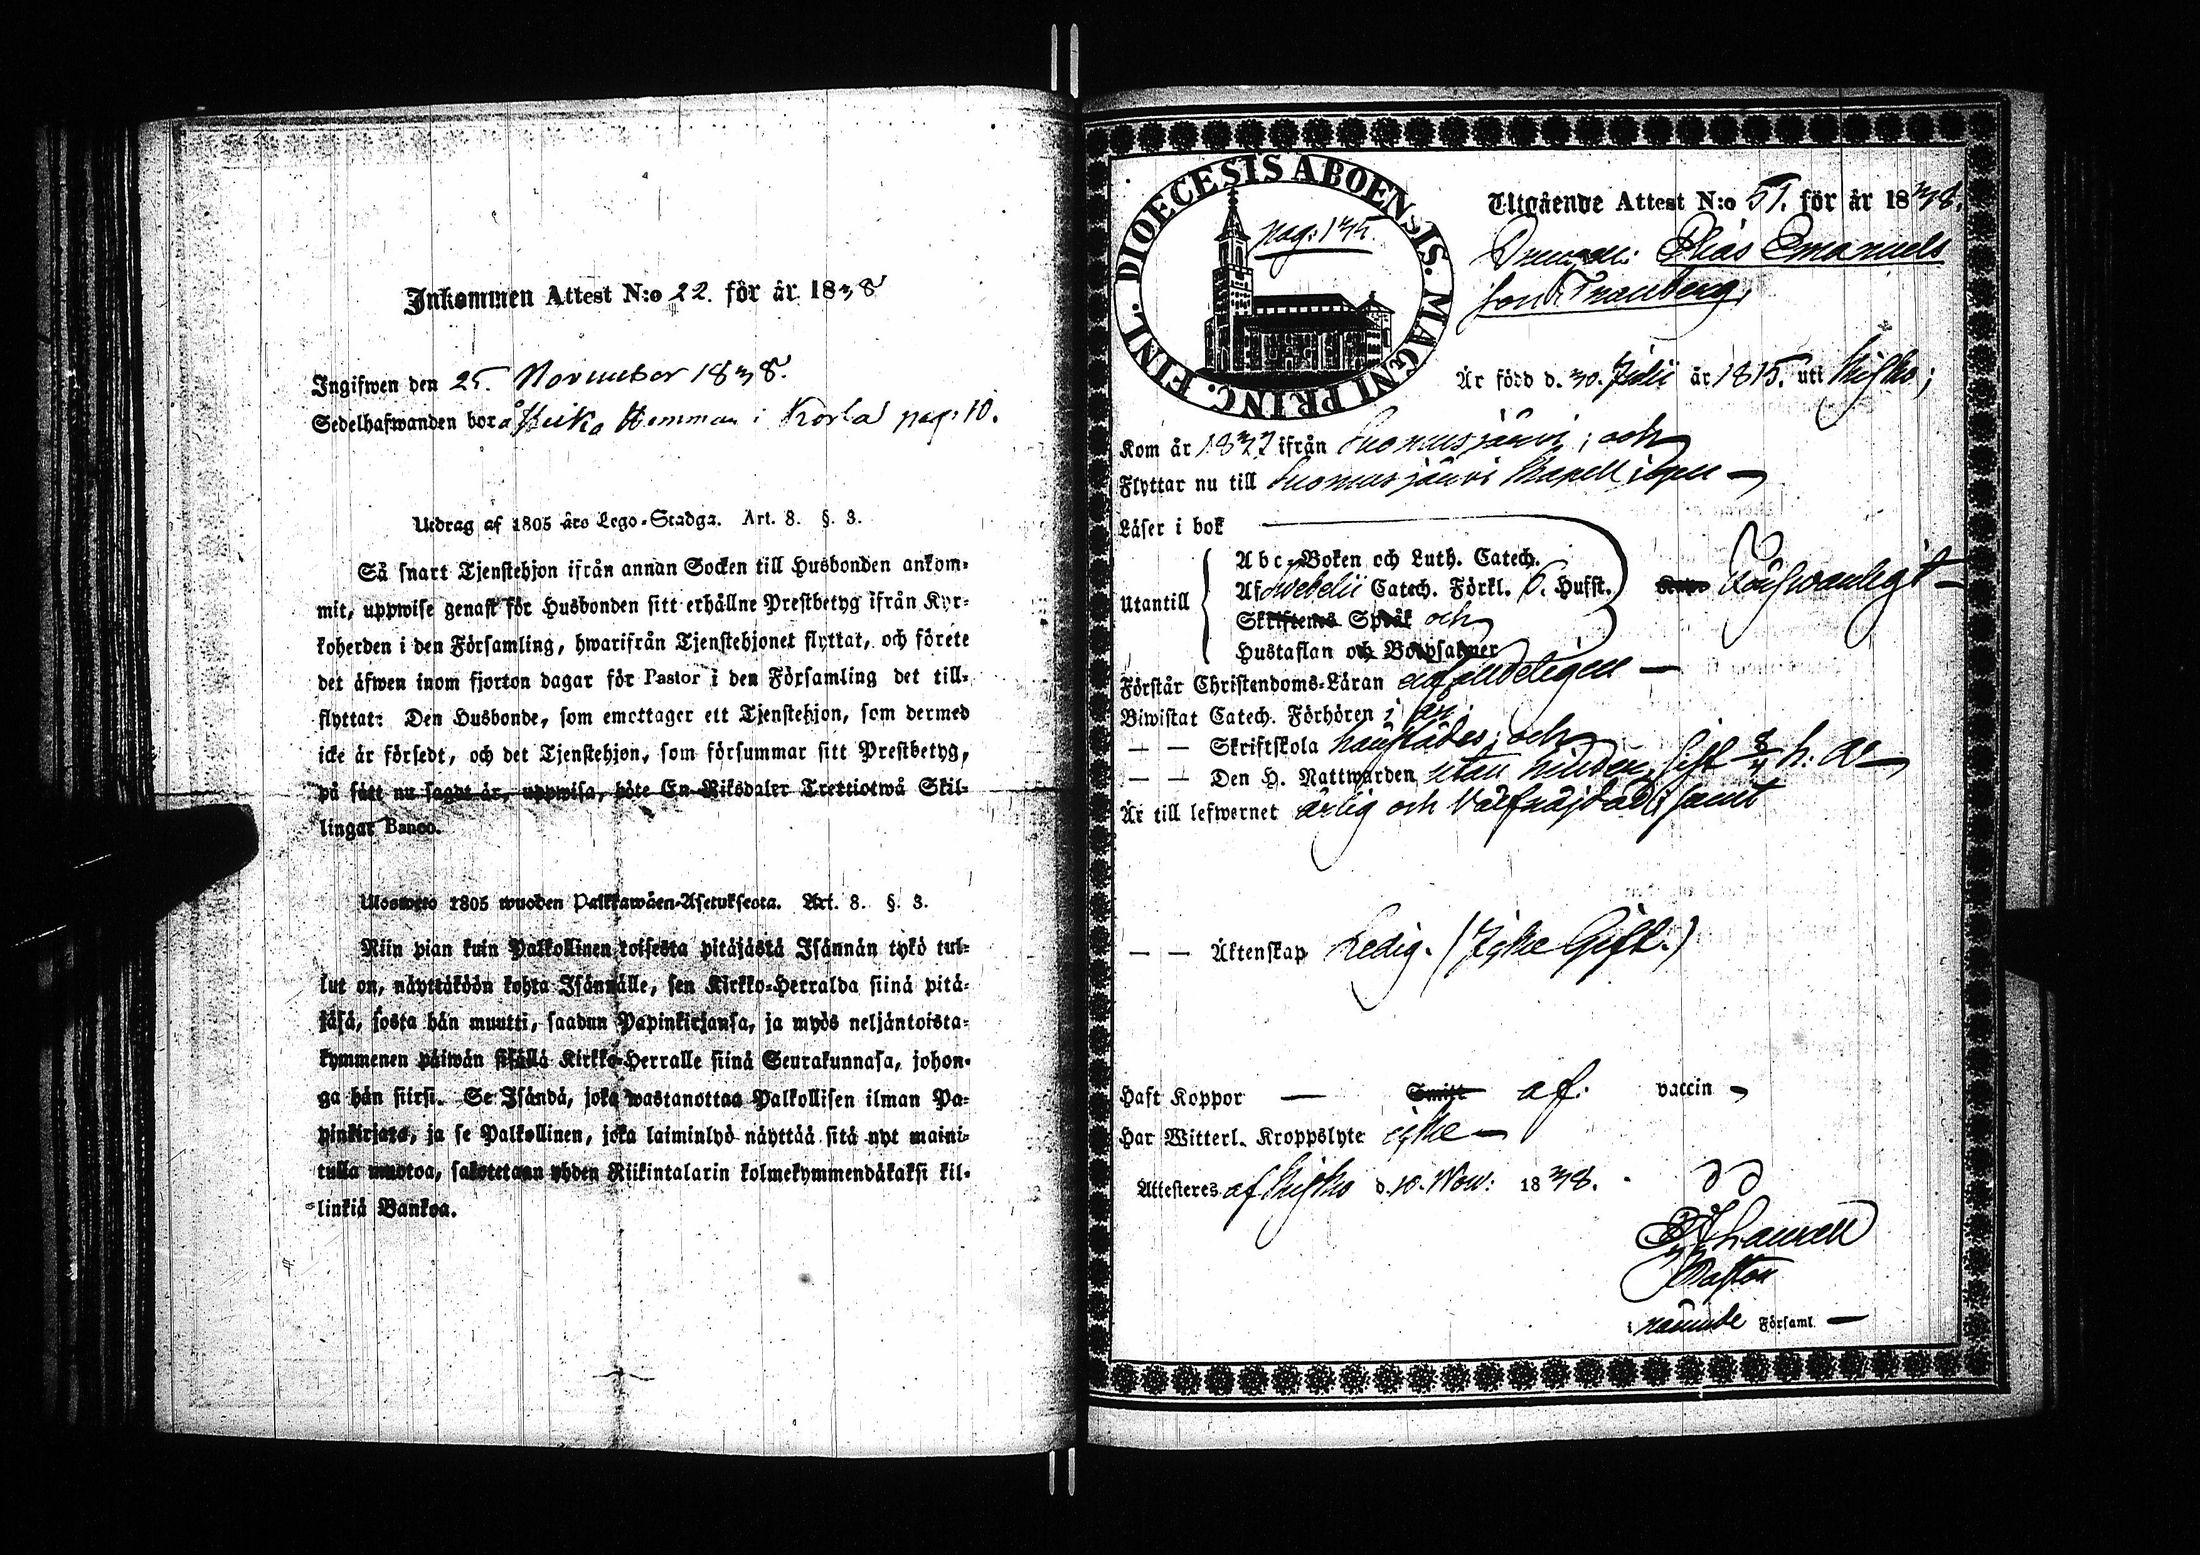 Inkommen Attest N:o 22. för år 1838
Ingifwen den 25. November 1838.
Sedelhafwanden bor å Heman i Korla pag: 10.
Utdrag af 1805 års Lego-Stadga. Art. 8. §. 3.
Så snart Tjenstehjon ifrån annan Socken till Husbonden ankom-
mit, uppwise genast för Husbonden sitt erhållne Prestbetyg ifrån Kyr-
koherden i den Församling, hwarifrån Tjenstehjonet flyttat, och förete
det äfwen inom fjorton dagar för Pastor i den Församling det till-
flyttat: Den Husbonde, som emottager ett Tjenstehjon, som dermed
icke är försedt, och det Tjenstehjon, som försummar sitt Prestbetyg,
på sätt nu sagdt är, uppwisa, böte En Riksdaler Trettiotwå Skil-
lingar Banco.
Uloswetö 1805 wuoden Palkkawäen-Asetuksesta. Art. 8. §. 3.
Niin pian kuin Palkollinen toisesta pitäjästä Isännän tykö tul-
lut on, näyttäköön kohta Isännälle, sen Kirkko-Herralda siinä pitä-
jäsä, josta hän muutti, saadun Papinkirjansa, ja myös neljäntoista-
kymmenen päiwän sisällä Kirkko-Herralle siinä Seurakunnasa, johon-
ga hän siirsi. Se Isändä, joka wastanottaa Palkollisen ilman Pa-
pinkirjata, ja se Palkollinen, joka laiminlyö näyttää sitä nyt maini-
tulla muotoa, sakotetaan yhden Riikintalarin kolmekymmendäkaksi kil-
linkiä Bankoa.
DIOECESIS ABOENSIS. MAGNI PRINC. FINL.
pag: 135.
Utgående Attest N:o 51. för år 1838.
Elias Emanuels
son Tranberg,
Är född d. 30. Julii år 1815. uti Kisko;
Kom år 1837 ifrån Suomusjärvi; och
Flyttar nu till Suomusjärvi Kapell igen
Läser i bok
Utantill
Abc-Boken och Luth. Catech.
Af Swebelii Catech. Förkl. 6. Hufst.
Skriftenes Språk och
Hustaflan och Botpsalmer
Försvarligt
Förstår Christendoms-Läran enfaldeligen
Biwistat Catech. Förhören i år.
— — Skriftskola härstädes; och
— — Den H. Nattwarden utan hinder, sist h. a.
Är till lefwernet ärlig och Välfräjdad; samt
— — Äktenskap Ledig. (Icke Gift.)
Haft Koppor — Smitt af. vaccin
Har Witterl. Kroppslyte icke
Attesteres af Kisko d. 10. Nov: 1838.
Pastor
i nämnde Församl.